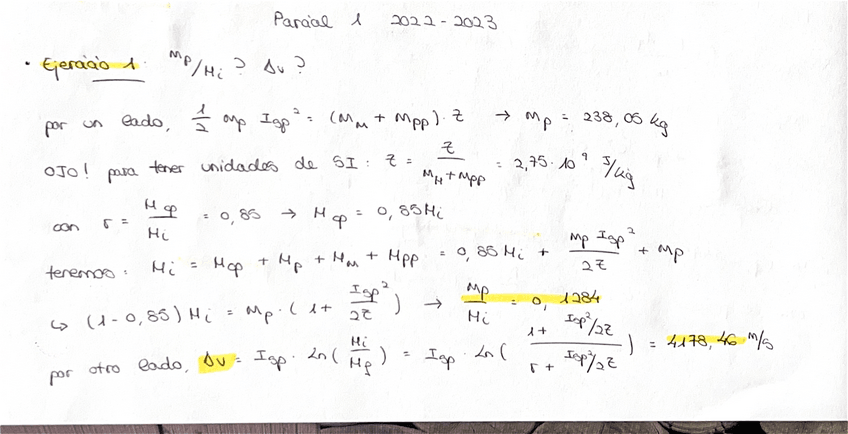 Parcial 1 2022-2023
· Ejercicio 1. Mp/Mi? Δv?
por un lado, 1/2 mp Isp² = (MM + MPP) · Z → Mp = 238,05 kg
OJO! para tener unidades de SI: Z = Z/(MM+MPP) = 2,75·10⁹ J/kg
con r = Mcp/Mi = 0,85 → Mcp = 0,85Mi
tenemos: Mi = Mcp + Mp + MM + MPP = 0,85Mi + Mp Isp²/2Z + Mp
↳ (1-0,85) Mi = Mp · (1 + Isp²/2Z) → Mp/Mi = 0,1284
por otro lado, Δv = Isp · Ln(Mi/Mf) = Isp · Ln((1 + Isp²/2Z)/(r + Isp²/2Z)) = 4178,46 m/s